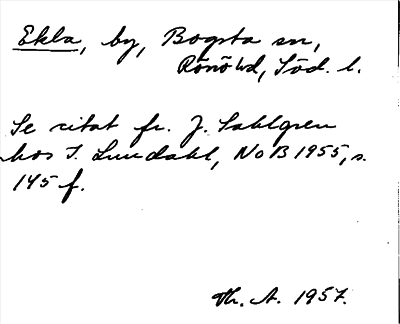 Ekla, by, Bogsta sn,
Rönö hd, Söd. l.
Se citat fr. J. Sahlgren
hos I. Lundahl, NoB 1955, s.
145 f.
Th. A. 1957.